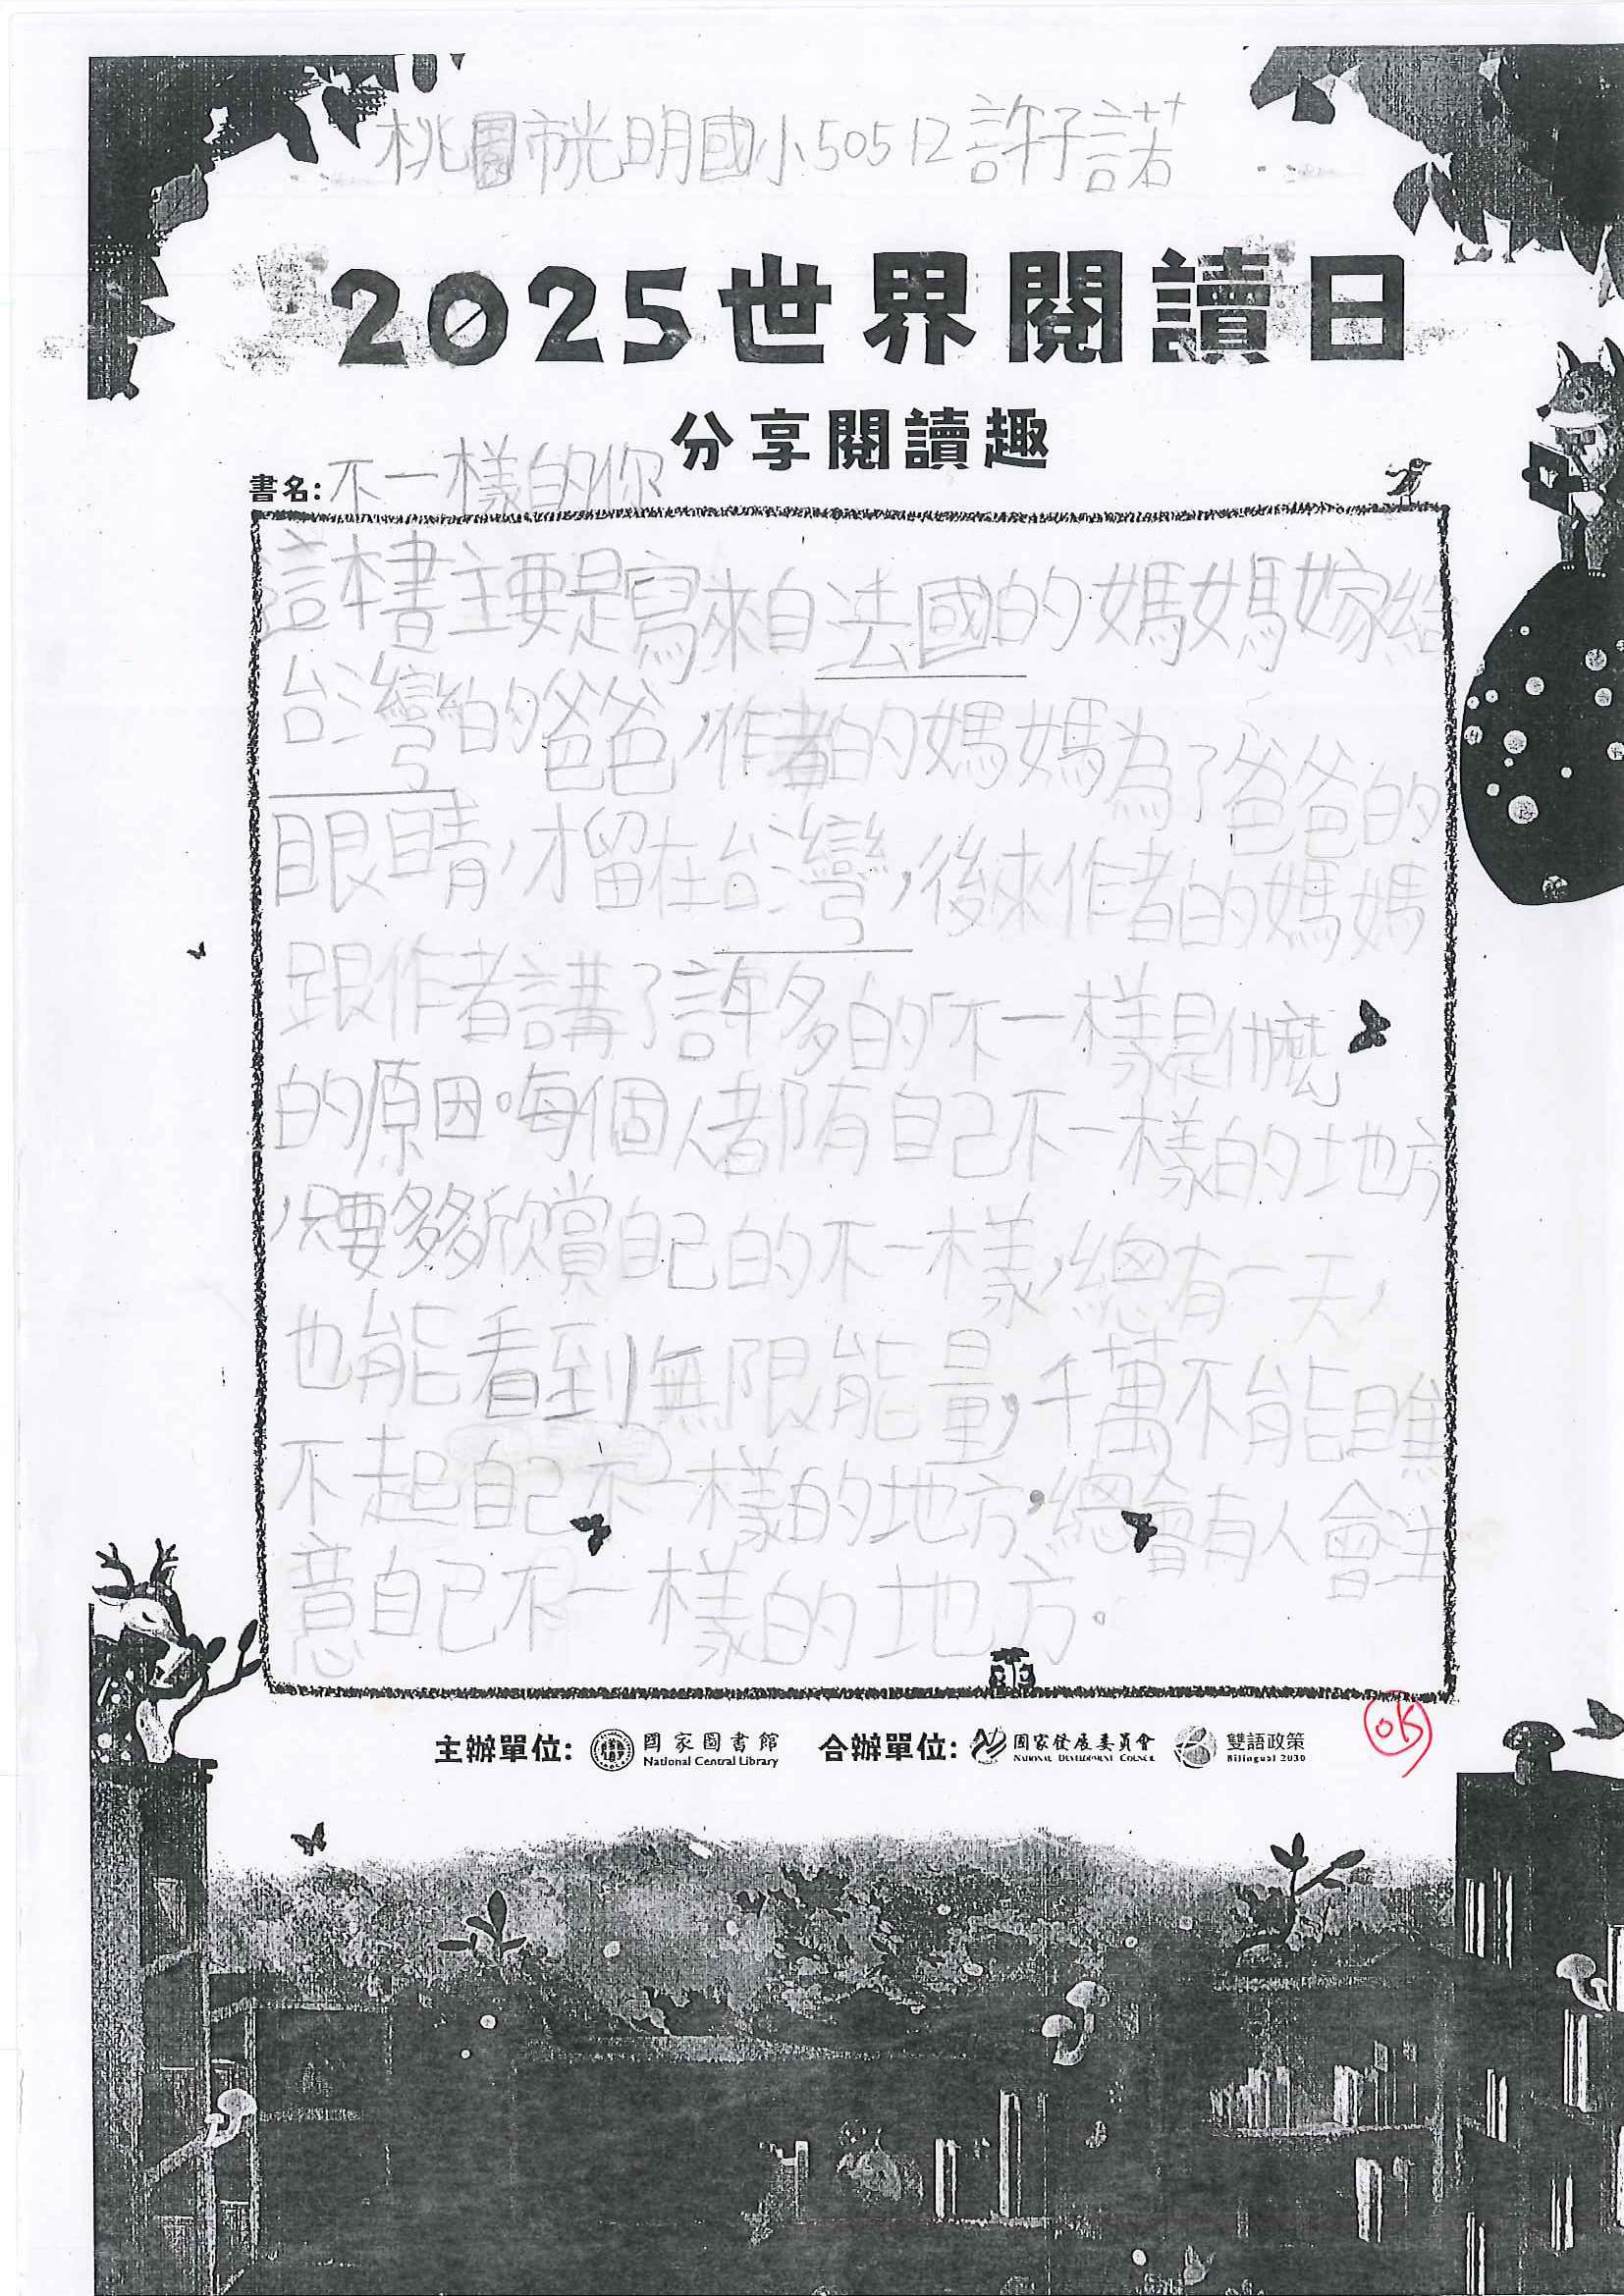 桃園市光明國小50512許子諾
2025世界閱讀日
分享閱讀趣
書名:不一樣的你
這本書主要是寫來自法國的媽媽嫁給
台灣的爸爸,作者的媽媽為了爸爸的
眼睛,才留在台灣,後來作者的媽媽
跟作者講了許多的「不一樣是什麼
的原因。每個人都有自己不一樣的地方
,只要多多欣賞自己的不一樣,總有一天,
也能看到無限能量,千萬不能瞧
不起自己不一樣的地方,總會有人會主
意自己不一樣的地方。
主辦單位: 國家圖書館 National Central Library 合辦單位: 國家發展委員會 NATIONAL DEVELOPMENT COUNCIL 雙語政策 Bilingual 2030
OK